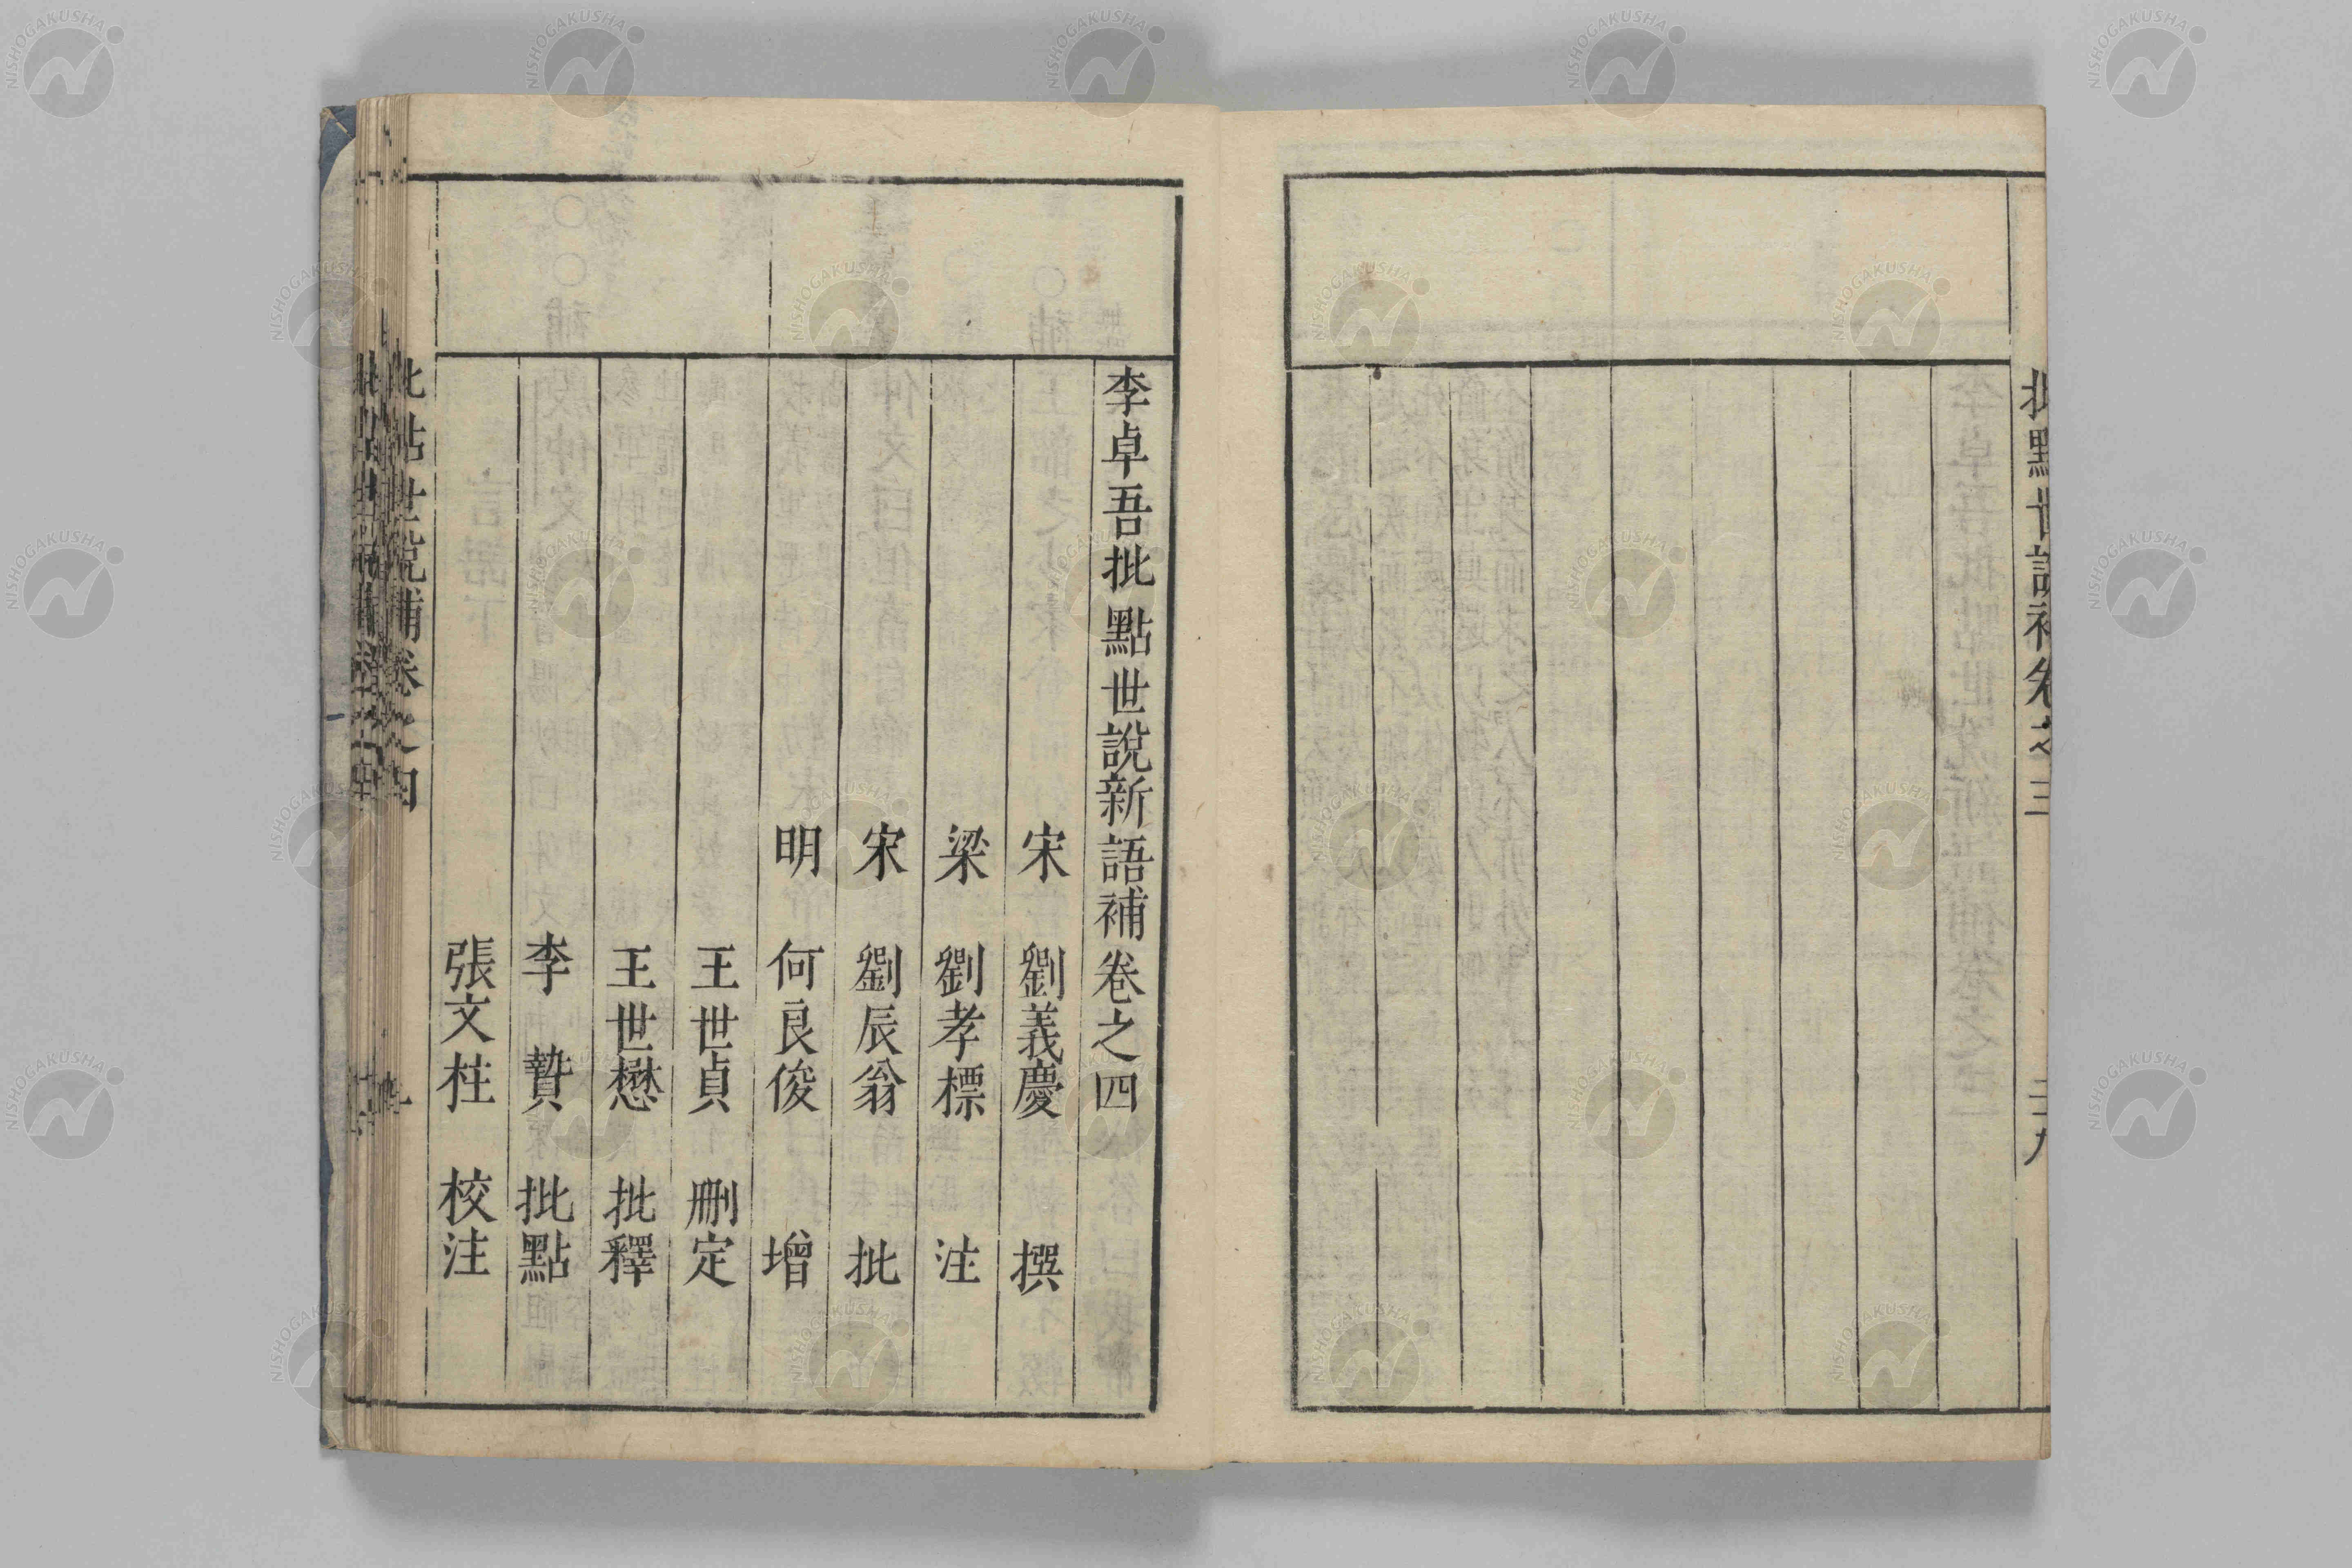 批點世說補卷之三
二十九
李卓吾批點世說新語補卷之四
宋 劉義慶 撰
梁 劉孝標 注
宋 劉辰翁 批
明 何良俊 增
王世貞 刪定
王世懋 批釋
李贄 批點
張文柱 校注
批點世說補卷之四
NISHOGAKUSHA